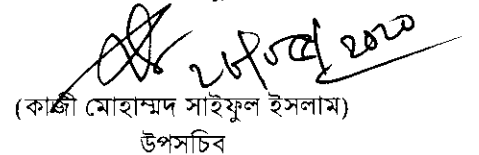 (কাজী মোহাম্মদ সাইফুল ইসলাম)
উপসচিব